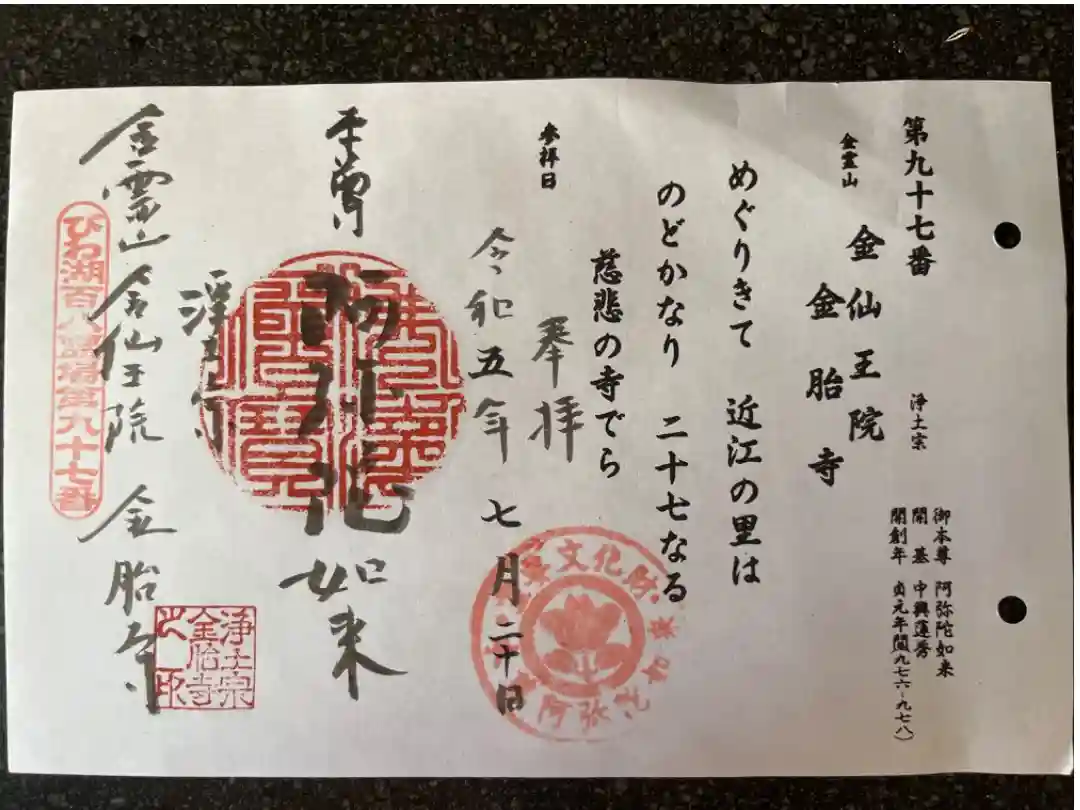 第九十七番
金霊山
金仙王院
金胎寺
浄土宗
御本尊 阿弥陀如来
開基 中興蓮秀
開創年 貞元年間九七六~九七八)
めぐりきて 近江の里は
のどかなり 二十七なる
慈悲の寺でら
参拝日
奉拝
令和五年 七月二十日
文化財
阿弥陀如来
本尊
阿弥陀如来
浄土宗
金霊山金仙王院 金胎寺
佛法僧寳
浄土宗
金胎寺
之印
びわ湖百八霊場第九十七番